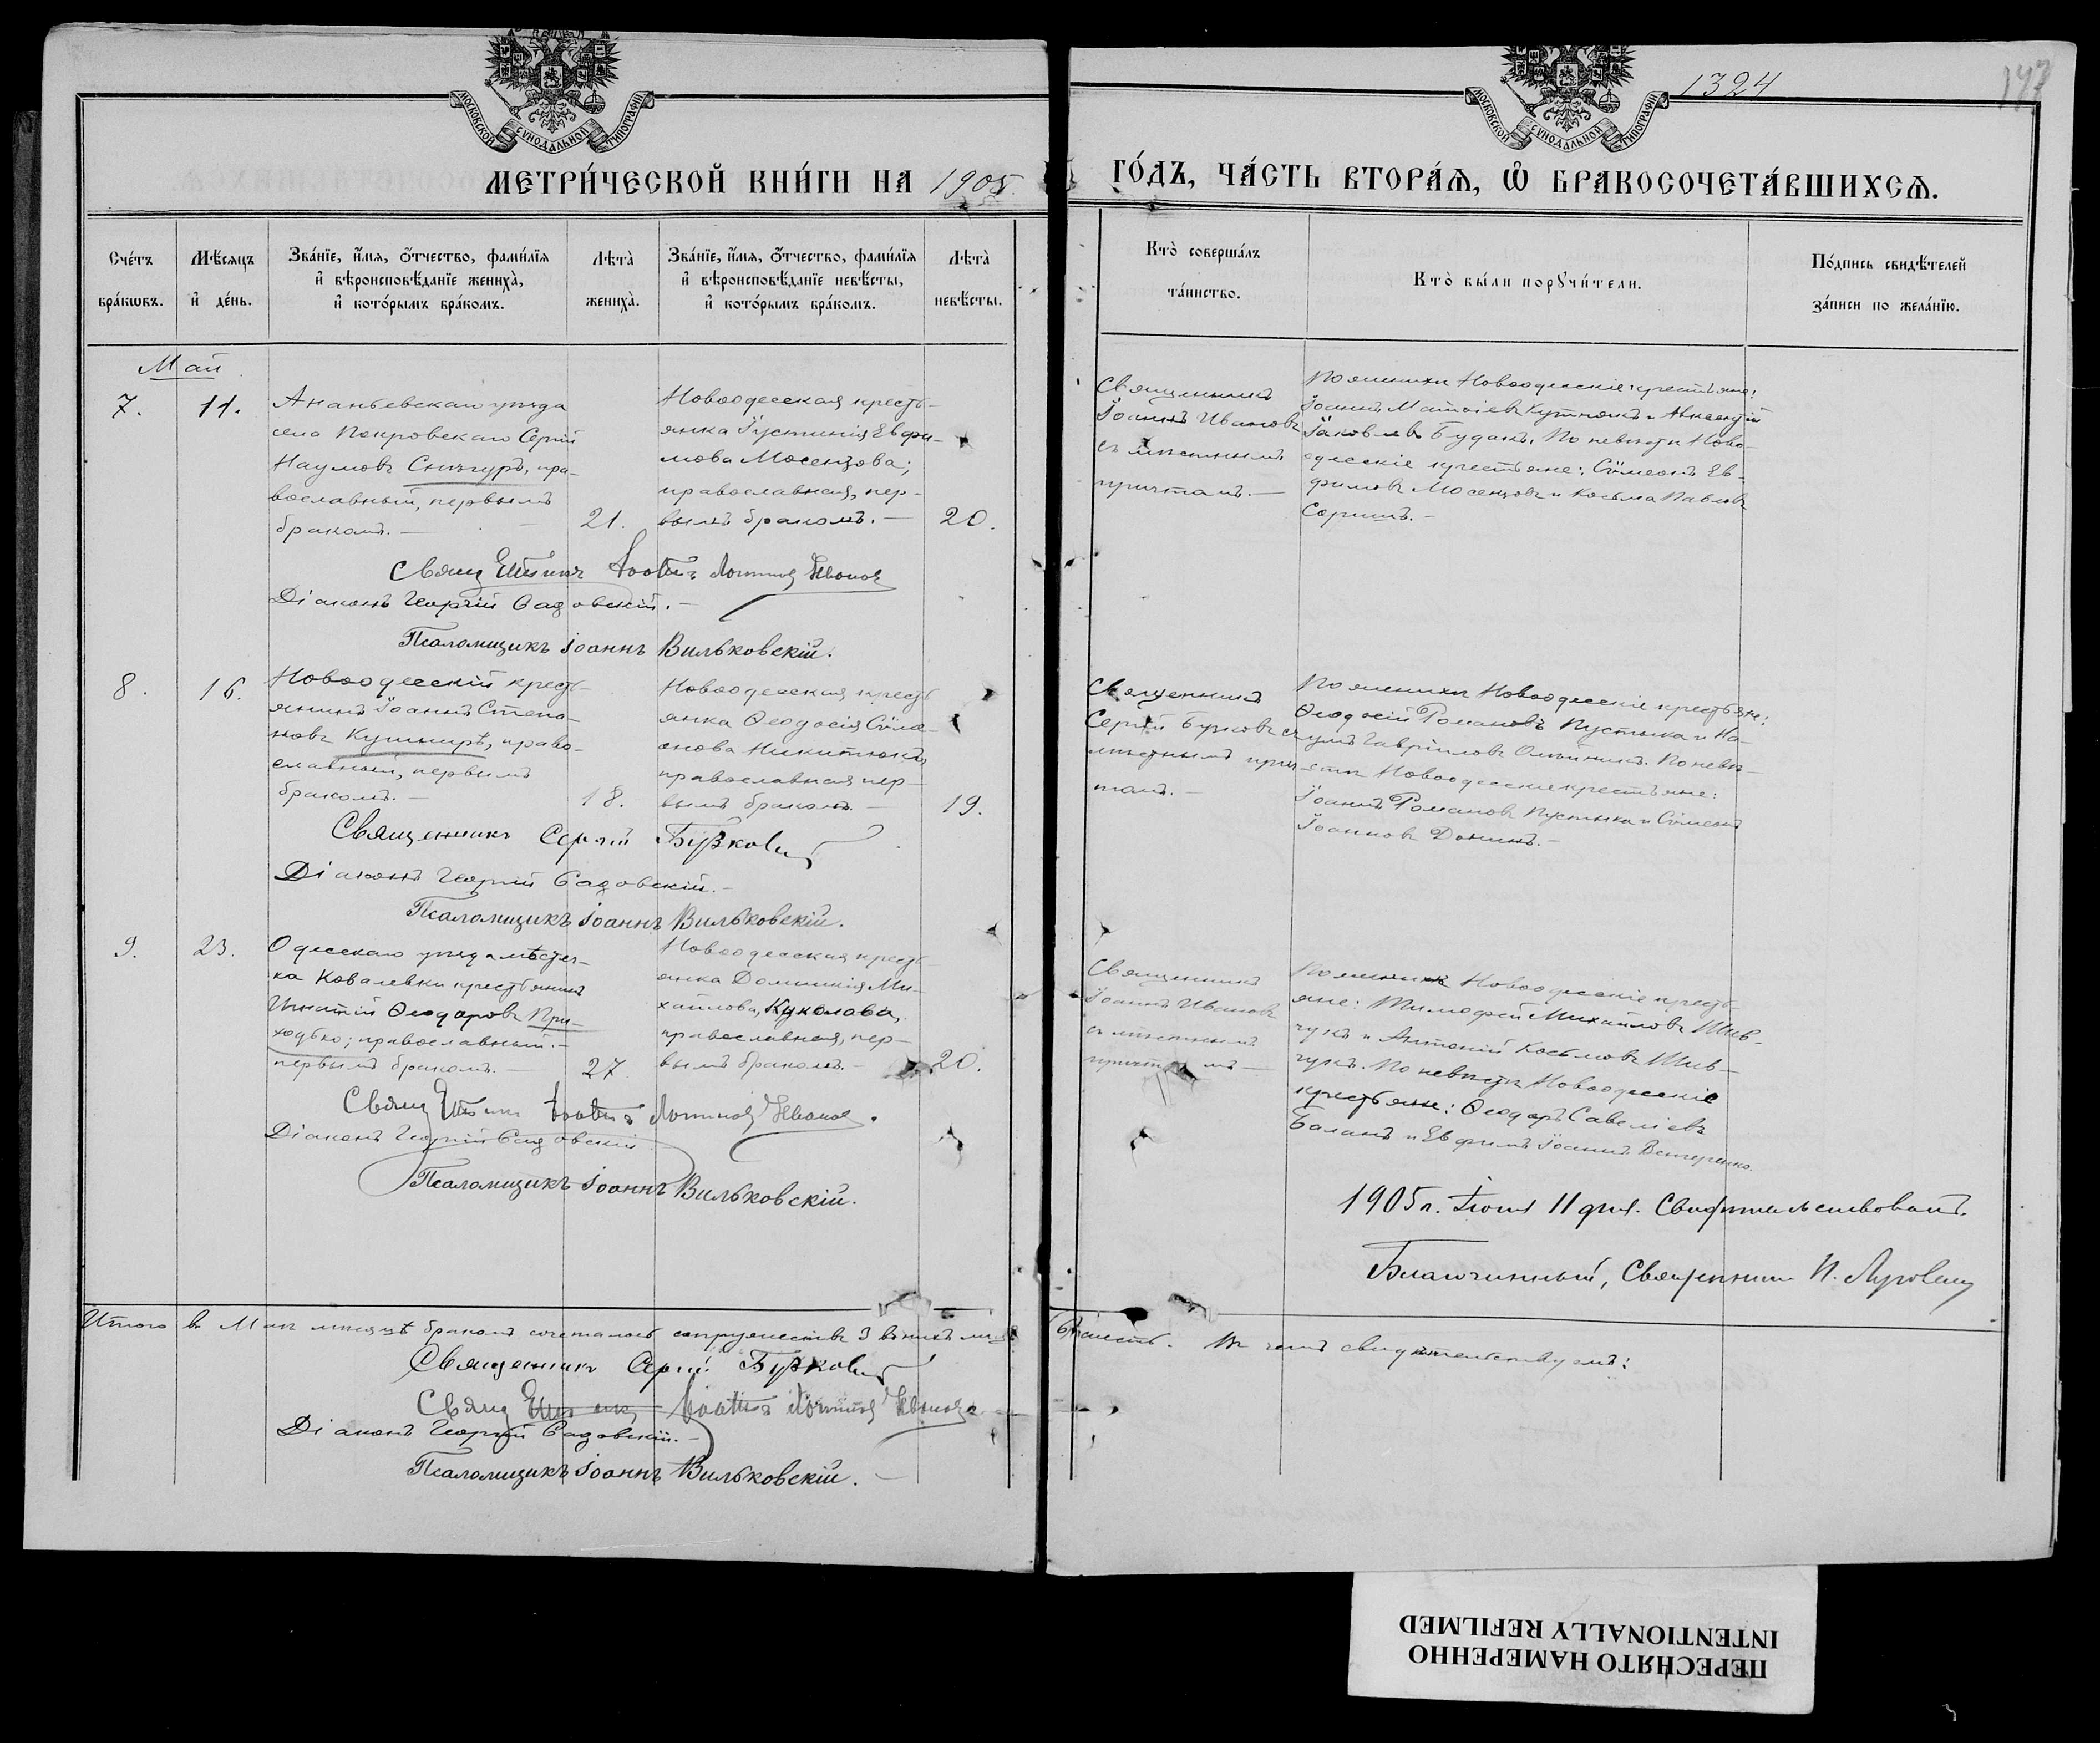 МОСКОВСКОЙ СУНОДАЛЬНОЙ ТИПОГРАФІИ
МОСКОВСКОЙ СУНОДАЛЬНОЙ ТИПОГРАФІИ
1324
147
МЕТРИ́ЧЕСКОЙ КНИ́ГИ НА 1905
ГО́ДЪ, ЧА́СТЬ ВТОРА́Я, Ѽ БРАКОСОЧЕТА́ВШИХСѦ.
Сче́тъ
бра́кѡвъ.
Мѣ́сяцъ
и҆ де́нь.
Зва́нїе, и҆́мя, ѻ҆́тчество, фами́лїя
и҆ вѣроисповѣ́данїе жениха̀,
и҆ кото́рымъ бра́комъ.
Лѣта̀
жениха̀.
Зва́нїе, и҆́мя, ѻ҆́тчество, фами́лїя
и҆ вѣроисповѣ́данїе невѣ́сты,
и҆ кото́рымъ бра́комъ.
Лѣта̀
невѣ́сты.
Кто̀ соверша́лъ
та́инство.
Кто̀ бы́ли порꙋчи́тели.
По́дпись свидѣ́телей
за́писи по жела́нїю.
Май
7.
11.
Ананьевскаго уѣзда
села Покровскаго Сергій
Наумовъ Снигуръ, пра-
вославный, первымъ
бракомъ. —
21.
Новоодесская кресть-
янка Іустинія Евфи-
мова Мосенцова;
православная, пер-
вымъ бракомъ. —
20.
Священникъ
Іоаннъ Ивановъ
съ мѣстнымъ
причтомъ. —
По женихѣ Новоодесскіе крестьяне:
Іоаннъ Матѳіевъ Кутнякъ и Авксентій
Іаковлевъ Бударъ. По невѣстѣ Ново-
одесскіе крестьяне: Сѵмеонъ Ев-
фимовъ Мосенцовъ и Косьма Павловъ
Сориш. —
Священникъ Іоаннъ Ивановъ
Діаконъ Георгій Садовскій. —
Псаломщикъ Іоаннъ Вильковскій.
8.
16.
Новоодесскій кресть-
янинъ Іоаннъ Степа-
новъ Кушниръ, право-
славный, первымъ
бракомъ. —
18.
Новоодесская кресть
янка Ѳеодосія Сѵме-
онова Никитюкъ,
православная пер-
вымъ бракомъ. —
19.
Священникъ
Сергій Бурковъ съ
мѣстнымъ прич-
томъ. —
По женихѣ Новоодесскіе крестьяне:
Ѳеодосій Романовъ Пустыка и На-
умъ Гавріиловъ Олейникъ. По невѣ-
стѣ Новоодесскіе крестьяне:
Іоаннъ Романовъ Пустыка и Сѵмеонъ
Іоанновъ Донинъ. —
Священникъ Сергій
Діаконъ Георгій Садовскій. —
Псаломщикъ Іоаннъ Вильковскій.
9.
23.
Одесскаго уѣзда мѣстеч-
ка Ковалевки крестьянинъ
Игнатій Ѳеодоровъ При-
ходько; православный. —
первымъ бракомъ. —
27
Новоодесская кресть
янка Домникія Ми-
хайлова Куколова,
православная, пер-
вымъ бракомъ. —
20.
Священникъ
Іоаннъ Ивановъ
съ мѣстнымъ
причтомъ —
По женихѣ Новоодесскіе кресть
яне: Тимофей Михайловъ Шев-
чукъ и Антоній Косьмовъ Шев-
чукъ. По невѣстѣ Новоодесскіе
крестьяне: Ѳеодоръ Савеліевъ
Баланъ и Евфимъ Іоаннъ Венгеренко.
Священникъ Іоаннъ Ивановъ.
Діаконъ Георгій Садовскій
Псаломщикъ Іоаннъ Вильковскій.
1905 г. Іюня 11 дня. Свидѣтельствовалъ.
Благочинный, Священникъ
Итого въ Маѣ мѣсяцѣ бракомъ сочеталось супружествъ 3 въ нихъ лицъ
шесть. Въ чемъ свидѣтельствуемъ:
Священникъ Сергій
Священникъ Іоаннъ Ивановъ
Діаконъ Георгій Садовскій. —
Псаломщикъ Іоаннъ Вильковскій. —
ПЕРЕСНЯТО НАМЕРЕННО
INTENTIONALLY REFILMED